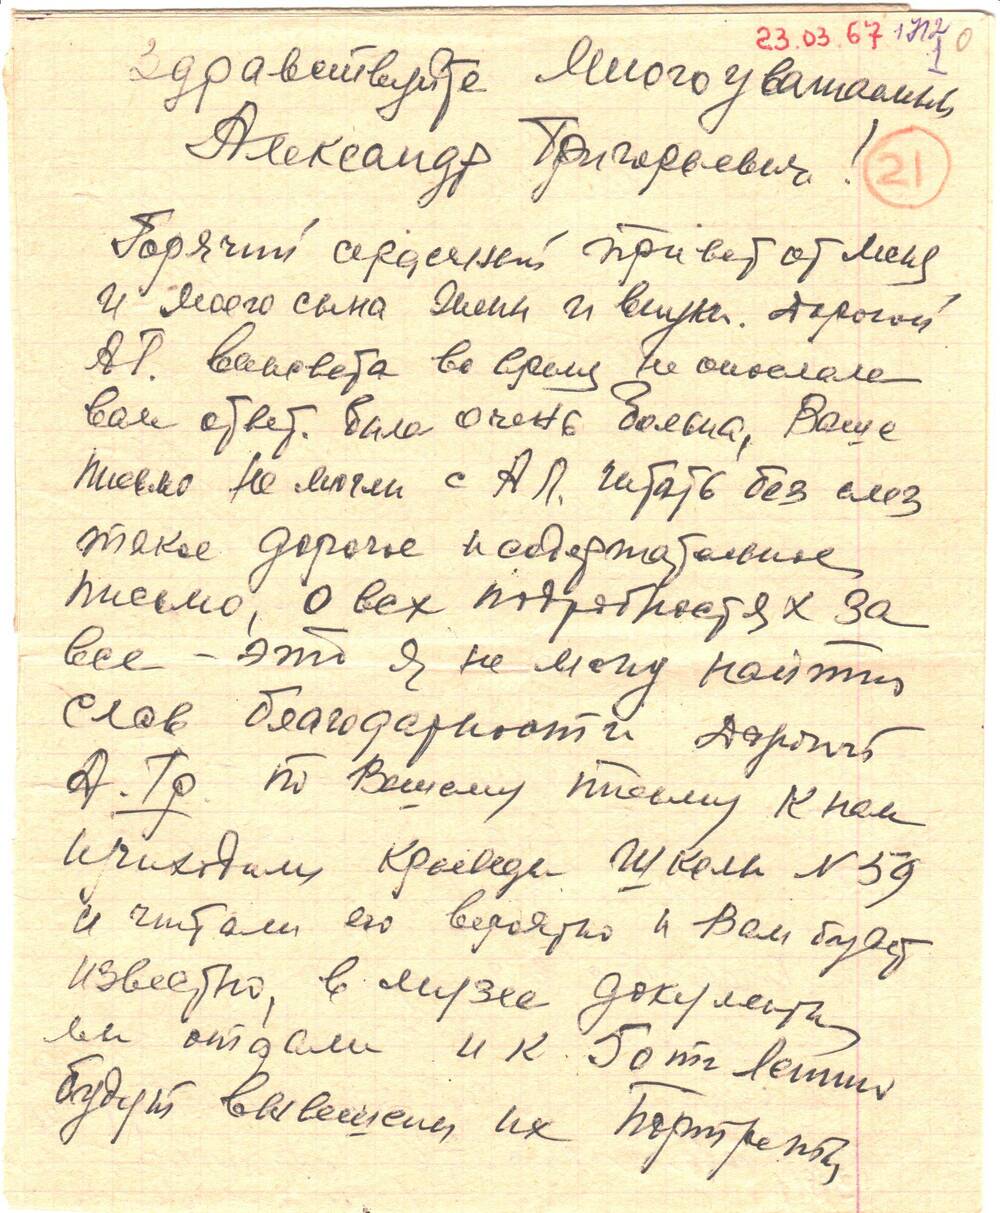 23.03.67 1712 0
1
Здравствуйте Многоуважаемый
Александр Григорьевич!
21
Горячий сердечный привет от меня
и моего сына жены и внуки. Дорогой
А Г. во время не ослала
вам ответ. была очень больна, Ваше
письмо не могли с А П. читать без слез
такое дорогое и содержательное
письмо, о всех подробностях за
все – это я не могу найти
слов благодарности Дорогой
А. Гр по Вашему письму к нам
приходили краеведы школы N 59
и читали его вероятно и Вам будет
известно, в музее документы
мы отдали и к 50ти летию
будут вывешены их портреты